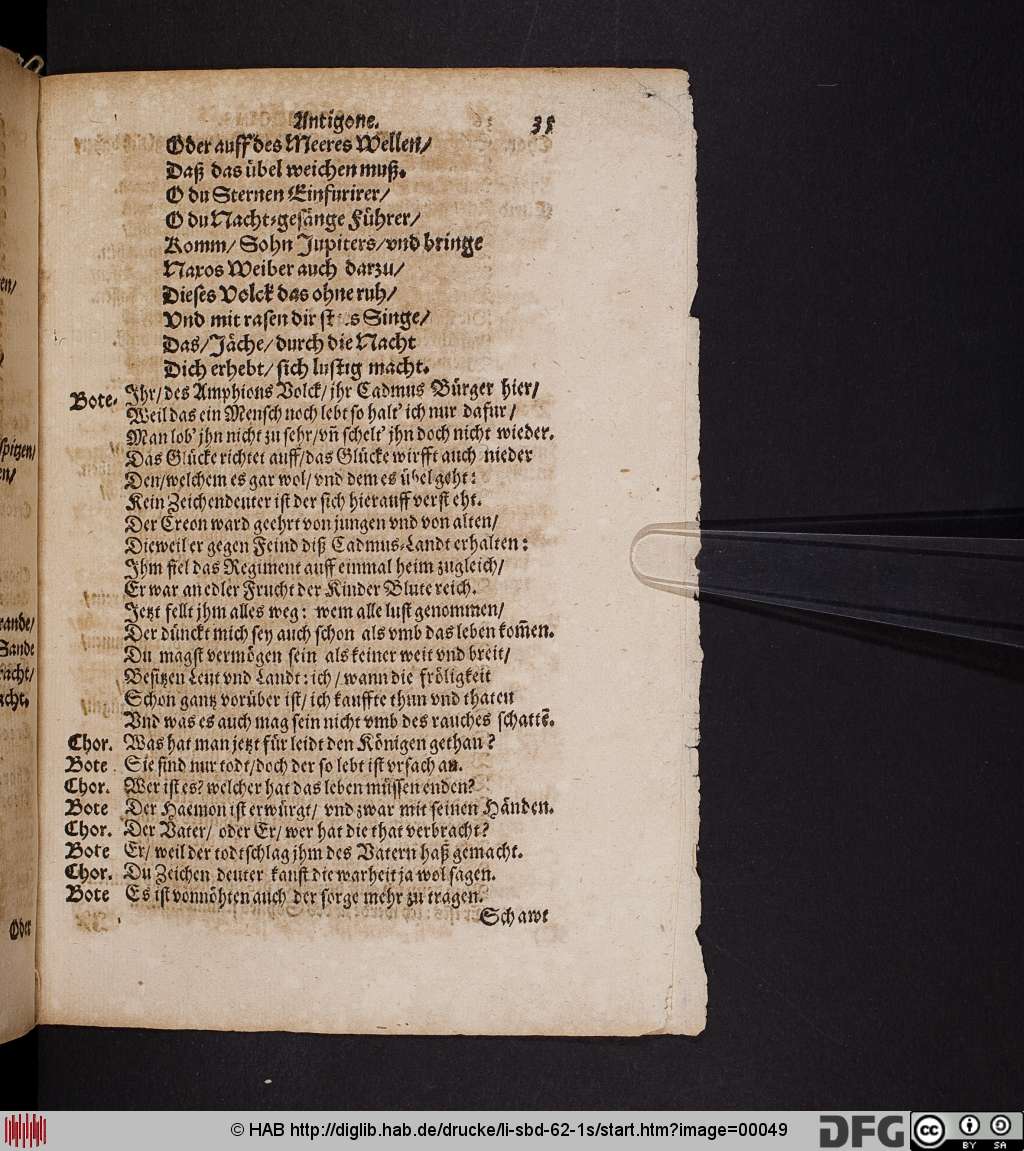 Antigone. 35
Oder auff des Meeres Wellen/
Daß das übel weichen muß.
O du Sternen Einfurirer/
O du Nacht-gesänge Führer/
Komm/ Sohn Jupiters/ vnd bringe
Naxos Weiber auch darzu/
Dieses Volck das ohne ruh/
Vnd mit rasen dir Singe/
Das/ Jäche/ durch die Nacht
Dich erhebt/ sich lustig macht.
Bote. Ihr/ des Amphions Volck/ jhr Cadmus Bürger hier/
Weil das ein Mensch noch lebt so halt' ich nur dafur/
Man lob' jhn nicht zu sehr/ vñ schelt' jhn doch nicht wieder.
Das Glücke richtet auff/ das Glücke wirfft auch nieder
Den/ welchem es gar wol/ vnd dem es übel geht:
Kein Zeichendeuter ist der sich hierauff versteht.
Der Creon ward geehrt von jungen vnd von alten/
Dieweil er gegen Feind diß Cadmus-Landt erhalten:
Ihm fiel das Regiment auff einmal heim zugleich/
Er war an edler Frucht der Kinder Blute reich.
Jetzt fellt jhm alles weg: wem alle lust genommen/
Der dünckt mich sey auch schon als vmb das leben kom̃en.
Du magst vermögen sein als keiner weit vnd breit/
Besitzen Leut vnd Landt: ich/ wann die fröligkeit
Schon gantz vorüber ist/ ich kauffte thun vnd thaten
Vnd was es auch mag sein nicht vmb des rauches schattẽ.
Chor. Was hat man jetzt für leidt den Königen gethan?
Bote Sie sind nur todt/ doch der so lebt ist vrsach an.
Chor. Wer ist es? welcher hat das leben müssen enden?
Bote Der Haemon ist erwürgt/ vnd zwar mit seinen Händen.
Chor. Der Vater/ oder Er/ wer hat die that verbracht?
Bote Er/ weil der todtschlag jhm des Vatern haß gemacht.
Chor. Du Zeichen deuter kanst die warheit ja wol sagen.
Bote Es ist vonnöhten auch der sorge mehr zu tragen.
Schawt
en/
spitzen/
en/
rande/
Sande
racht/
acht.
Oder
© HAB http://diglib.hab.de/drucke/li-sbd-62-1s/start.htm?image=00049
DFG
cc BY SA